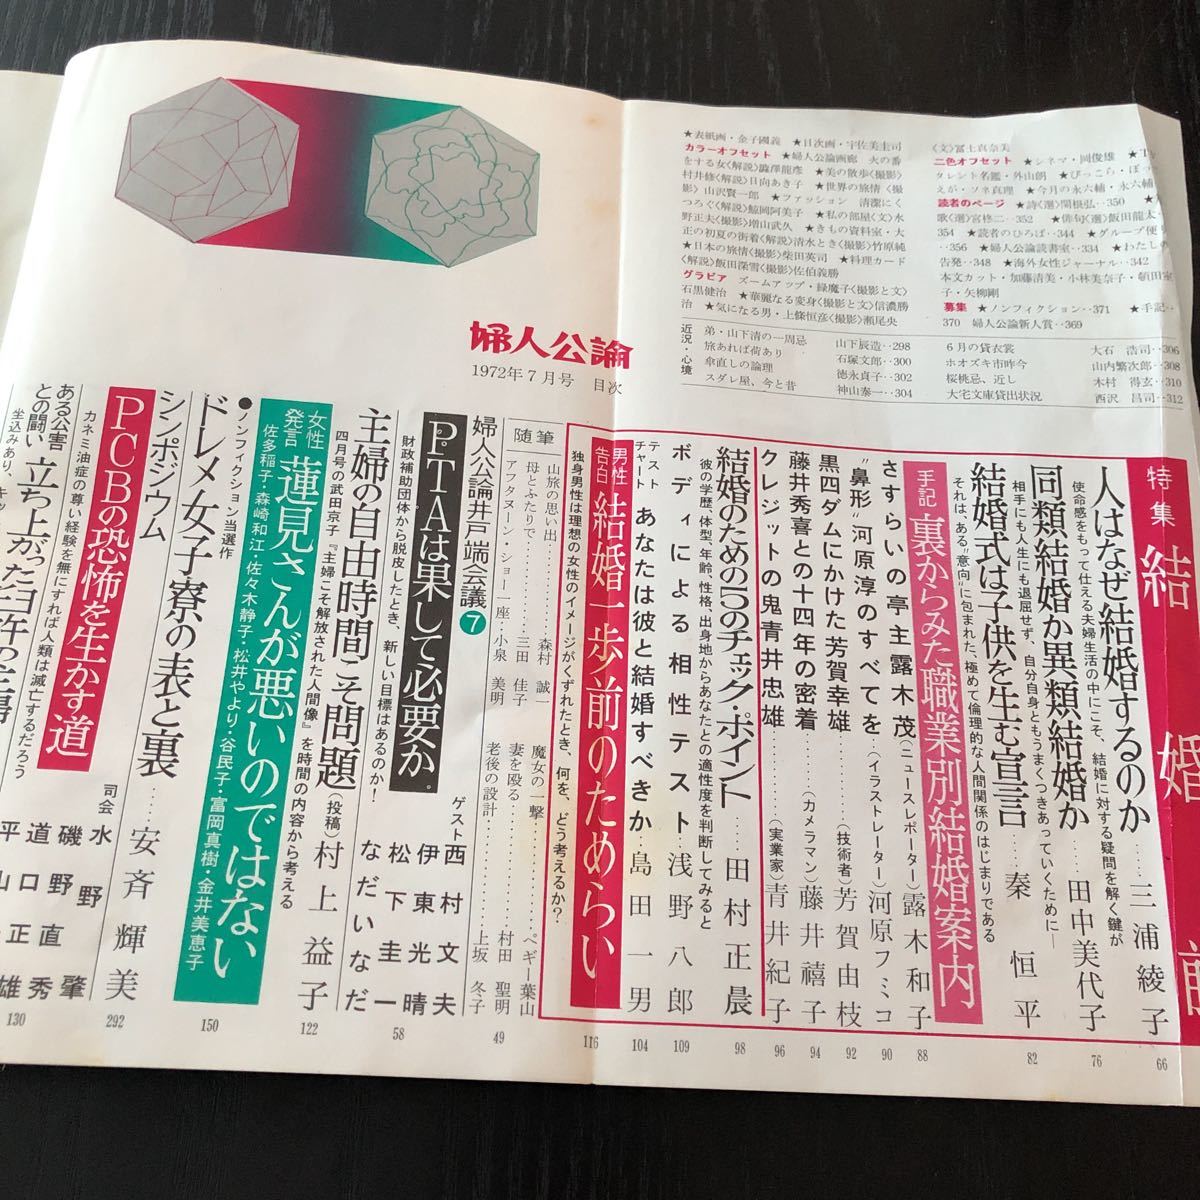 ★表紙画・金子國義　★目次画・宇佐美圭司
カラーオフセット　★婦人公論画廊　火の番
をする女〈解説〉澁澤龍彦　★美の散歩〈撮影〉
村井修〈解説〉日向あき子　★世界の旅情〈撮
影〉山沢賢一郎　★ファッション　清潔にく
つろぐ〈解説〉鯨岡阿美子　★私の部屋〈文〉水
野正夫〈撮影〉増山武久　★きもの資料室・大
正の初夏の街着〈解説〉清水とき〈撮影〉竹原純
★日本の旅情〈撮影〉柴田英司　★料理カード
〈解説〉飯田深雪〈撮影〉佐伯義勝
グラビア　ズームアップ・緑魔子〈撮影と文〉
石黒健治　★華麗なる変身〈撮影と文〉信濃勝
治　★気になる男・上條恒彦〈撮影〉瀬尾央
〈文〉冨士真奈美
二色オフセット　★シネマ・岡俊雄　★
タレント名鑑・外山朗　★ぴっこら・ぽっ
えが・ソネ真理　★今月の永六輔・永六輔
読者のページ　★詩〈選〉関根弘‥350　★
歌〈選〉宮柊二‥352　★俳句〈選〉飯田龍太・
354　★読者のひろば‥344　★グループ便り
‥356　★婦人公論読書室‥334　★わたしの
告発‥348　★海外女性ジャーナル‥342
本文カット・加藤清美・小林美奈子・
子・矢柳剛
募集　★ノンフィクション‥371　★手記‥
370　婦人公論新人賞‥369
近況・心境
弟・山下清の一周忌　山下辰造‥298
旅あれば荷あり　石塚文郎‥300
傘直しの論理　徳永貞子‥302
スダレ屋、今と昔　神山泰一‥304
6月の貸衣裳　大石　浩司‥306
ホオズキ市昨今　山内繁次郎‥308
桜桃忌、近し　木村　得玄‥310
大宅文庫貸出状況　西沢　昌司‥312
婦人公論
1972年7月号　目次
特集　結婚前
人はなぜ結婚するのか　三浦綾子　66
使命感をもって仕える夫婦生活の中にこそ、結婚に対する疑問を解く鍵が
同類結婚か異類結婚か　田中美代子　76
相手にも人生にも退屈せず、自分自身ともうまくつきあっていくために―
結婚式は子供を生む宣言　秦　恒平　82
それは、ある“意向”に包まれた、極めて倫理的な人間関係のはじまりである
手記　裏からみた職業別結婚案内
さすらいの亭主露木茂（ニュースレポーター）露木和子　88
“鼻形”河原淳のすべてを（イラストレーター）河原フミコ　90
黒四ダムにかけた芳賀幸雄（技術者）芳賀由枝　92
藤井秀喜との十四年の密着（カメラマン）藤井禧子　94
クレジットの鬼青井忠雄（実業家）青井紀子　96
結婚のための15のチェック・ポイント　田村正晨　98
彼の学歴、体型、年齢、性格、出身地からあなたとの適性度を判断してみると
ボディによる相性テスト　浅野八郎　109
テストチャート　あなたは彼と結婚すべきか　島田一男　104
男性告白　結婚一歩前のためらい　116
独身男性は理想の女性のイメージがくずれたとき、何を、どう考えるか？
随筆
山旅の思い出　森村　誠一
母とふたりで　三田　佳子
アフタヌーン・ショー一座　小泉　美明
魔女の一撃　ペギー葉山
妻を殴る　村田　聖明
老後の設計　上坂　冬子
49
婦人公論井戸端会議⑦
PTAは果して必要か
財政補助団体から脱皮したとき、新しい目標はあるのか！
ゲスト　西村文夫
伊東光晴
松下圭一
なだいなだ
58
主婦の自由時間こそ問題（投稿）村上益子　122
四月号の武田京子『主婦こそ解放された人間像』を時間の内容から考える
女性発言　蓮見さんが悪いのではない
佐多稲子・森崎和江・佐々木静子・松井やより・谷民子・富岡真樹・金井美恵子
150
●ノンフィクション当選作
ドレメ女子寮の表と裏　安斉輝美　292
シンポジウム
PCBの恐怖を生かす道
カネミ油症の尊い経験を無にすれば人類は滅亡するだろう
司会　水野肇
磯野直秀
道口正雄
130
ある公害との闘い　立ち上がった臼杵の主婦
坐込みあり、
平